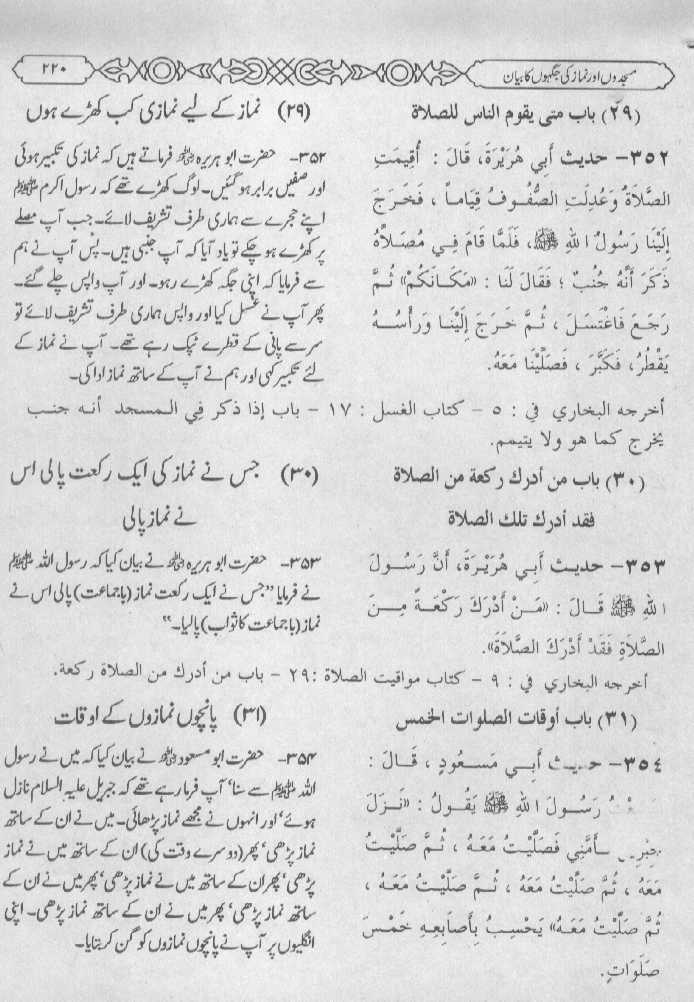 مسجدوں اور نماز کی جگہوں کا بیان
۲۲۰
(۲۹) باب متى يقوم الناس للصلاة
۳۵۲- حديث أَبِي هُرَيْرَةَ، قَالَ : أُقِيمَتِ
الصَّلَاةُ وَعُدِلَتِ الصُّفُوفُ قِيَاماً ، فَخَرَجَ
إِلَيْنَا رَسُولُ اللهِ ﷺ، فَلَمَّا قَامَ فِي مُصَلَّاهُ
ذَكَرَ أَنَّهُ جُنُبٌ ؛ فَقَالَ لَنَا : «مَكَانَكُمْ» ثُمَّ
رَجَعَ فَاغْتَسَلَ ، ثُمَّ خَرَجَ إِلَيْنَا وَرَأْسُهُ
يَقْطُرُ، فَكَبَّرَ ، فَصَلَّيْنَا مَعَهُ.
(۲۹) نماز کے لیے نمازی کب کھڑے ہوں
۳۵۲- حضرت ابو ہریرہ رضی اللہ عنہ فرماتے ہیں کہ نماز کی تکبیر ہوئی
اور صفیں برابر ہو گئیں۔ لوگ کھڑے تھے کہ رسول اکرم ﷺ
اپنے حجرے سے ہماری طرف تشریف لائے۔ جب آپ مصلے
پر کھڑے ہو چکے تو یاد آیا کہ آپ جنبی ہیں۔ پس آپ نے ہم
سے فرمایا کہ اپنی جگہ کھڑے رہو۔ اور آپ واپس چلے گئے۔
پھر آپ نے غسل کیا اور واپس ہماری طرف تشریف لائے تو
سر سے پانی کے قطرے ٹپک رہے تھے۔ آپ نے نماز کے
لئے تکبیر کہی اور ہم نے آپ کے ساتھ نماز ادا کی۔
أخرجه البخاري في : ٥ - كتاب الغسل : ١٧ - باب إذا ذكر في المسجد أنه جنب
يخرج كما هو ولا يتيمم.
(۳۰) باب من أدرك ركعة من الصلاة
فقد أدرك تلك الصلاة
۳۵۳- حديث أَبِي هُرَيْرَةَ، أَنَّ رَسُولَ
اللهِ ﷺ قَالَ : «مَنْ أَدْرَكَ رَكْعَةً مِنَ
الصَّلَاةِ فَقَدْ أَدْرَكَ الصَّلَاةَ».
(۳۰) جس نے نماز کی ایک رکعت پالی اس
نے نماز پالی
۳۵۳- حضرت ابو ہریرہ رضی اللہ عنہ نے بیان کیا کہ رسول اللہ ﷺ
نے فرمایا ”جس نے ایک رکعت نماز (باجماعت) پالی اس نے
نماز (باجماعت کا ثواب) پالیا۔“
أخرجه البخاري في : ٩ - كتاب مواقيت الصلاة : ٢٩ - باب من أدرك من الصلاة ركعة.
(۳۱) باب أوقات الصلوات الخمس
۳۵٤- حديث أَبِي مَسْعُودٍ ، قَالَ :
رَسُولَ اللهِ ﷺ يَقُولُ : «نَزَلَ
فَأَمَّنِي فَصَلَّيْتُ مَعَهُ ، ثُمَّ صَلَّيْتُ
مَعَهُ ، ثُمَّ صَلَّيْتُ مَعَهُ ، ثُمَّ صَلَّيْتُ مَعَهُ ،
ثُمَّ صَلَّيْتُ مَعَهُ» يَحْسُبُ بِأَصَابِعِهِ خَمْسَ
صَلَوَاتٍ.
(۳۱) پانچوں نمازوں کے اوقات
۳۵۴- حضرت ابو مسعود رضی اللہ عنہ نے بیان کیا کہ میں نے رسول
اللہ ﷺ سے سنا‘ آپ فرما رہے تھے کہ جبریل علیہ السلام نازل
ہوئے‘ اور انہوں نے مجھے نماز پڑھائی۔ میں نے ان کے ساتھ
نماز پڑھی‘ پھر (دوسرے وقت کی) ان کے ساتھ میں نے نماز
پڑھی‘ پھر ان کے ساتھ میں نے نماز پڑھی‘ پھر میں نے ان کے
ساتھ نماز پڑھی‘ پھر میں نے ان کے ساتھ نماز پڑھی۔ اپنی
انگلیوں پر آپ نے پانچوں نمازوں کو گن کر بتایا۔